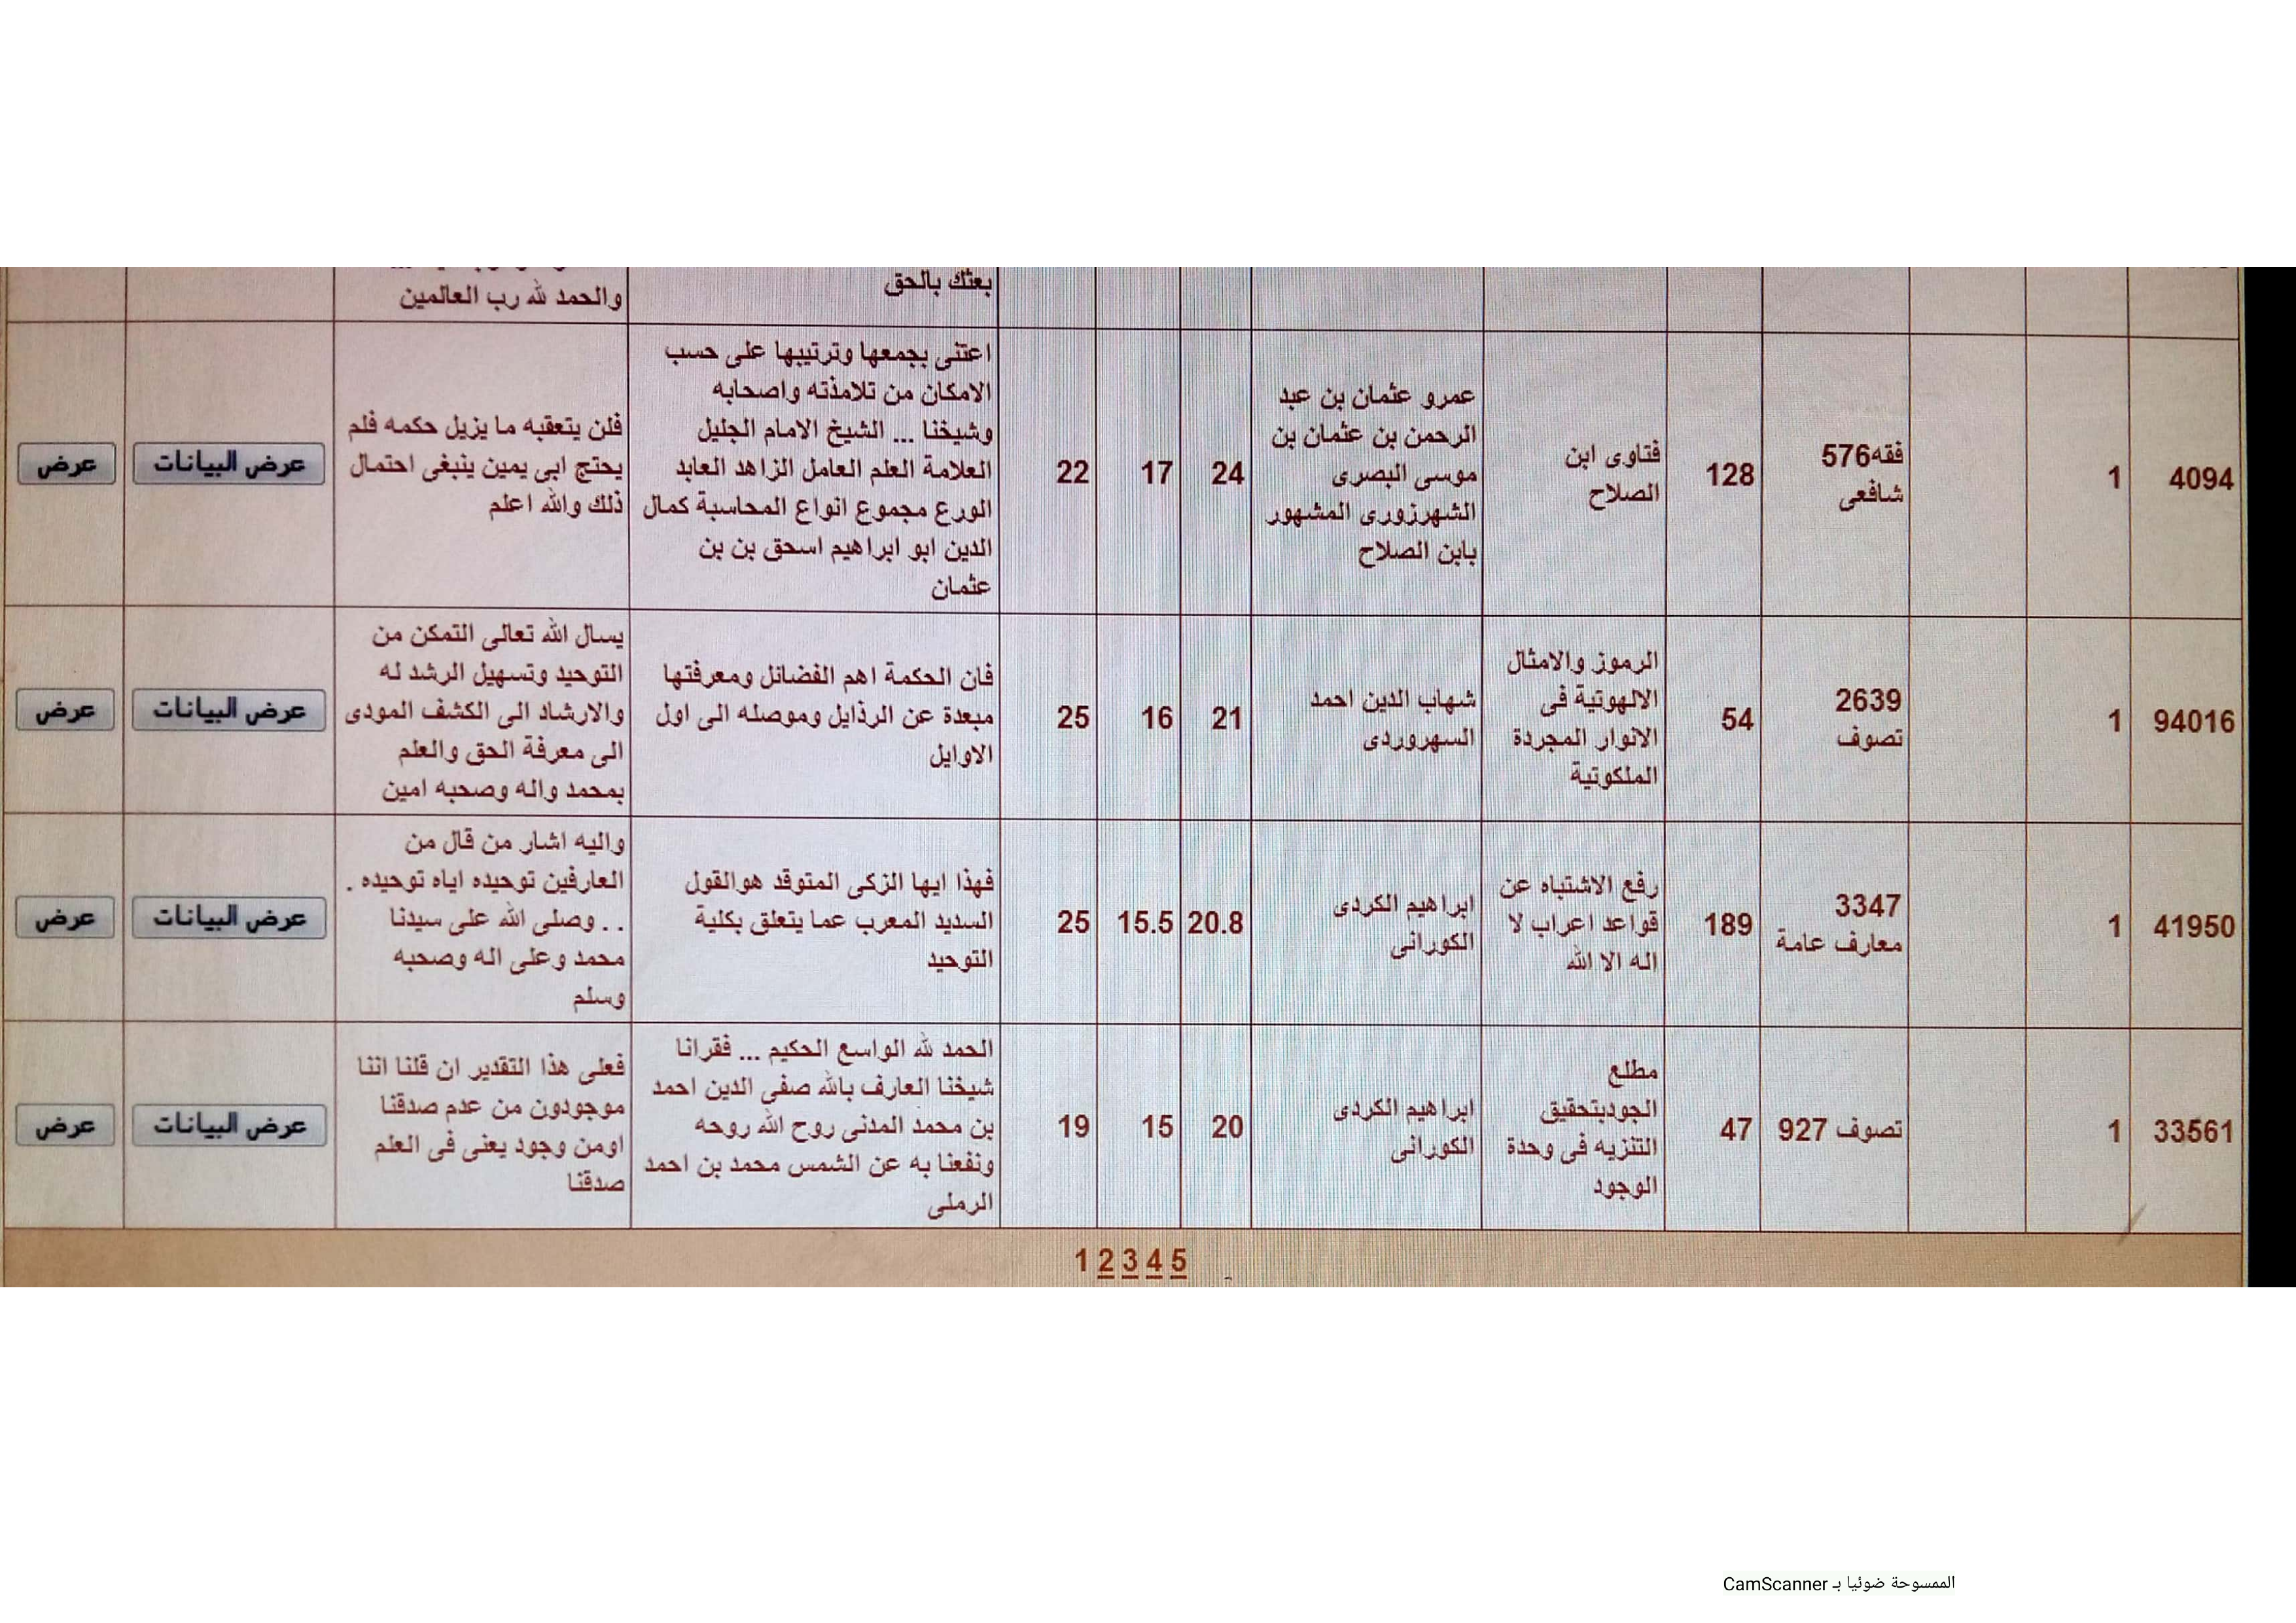 بعثك بالحق
والحمد لله رب العالمين
4094
1
فقه576
شافعى
128
فتاوى ابن
الصلاح
عمرو عثمان بن عبد
الرحمن بن عثمان بن
موسى البصرى
الشهرزورى المشهور
بابن الصلاح
24
17
22
اعتنى بجمعها وترتيبها على حسب
الامكان من تلامذته واصحابه
وشيخنا ... الشيخ الامام الجليل
العلامة العلم العامل الزاهد العابد
الورع مجموع انواع المحاسبة كمال
الدين ابو ابراهيم اسحق بن بن
عثمان
فلن يتعقبه ما يزيل حكمه فلم
يحتج ابى يمين ينبغى احتمال
ذلك والله اعلم
عرض البيانات
عرض
94016
1
2639
تصوف
54
الرموز والامثال
الالهوتية فى
الانوار المجردة
الملكوتية
شهاب الدين احمد
السهروردى
21
16
25
فان الحكمة اهم الفضائل ومعرفتها
مبعدة عن الرذايل وموصله الى اول
الاوايل
يسال الله تعالى التمكن من
التوحيد وتسهيل الرشد له
والارشاد الى الكشف المودى
الى معرفة الحق والعلم
بمحمد واله وصحبه امين
عرض البيانات
عرض
41950
1
3347
معارف عامة
189
رفع الاشتباه عن
قواعد اعراب لا
اله الا الله
ابراهيم الكردى
الكورانى
20.8
15.5
25
فهذا ايها الزكى المتوقد هوالقول
السديد المعرب عما يتعلق بكلية
التوحيد
واليه اشار من قال من
العارفين توحيده اياه توحيده .
. . وصلى الله على سيدنا
محمد وعلى اله وصحبه
وسلم
عرض البيانات
عرض
33561
1
تصوف 927
47
مطلع
الجودبتحقيق
التنزيه فى وحدة
الوجود
ابراهيم الكردى
الكورانى
20
15
19
الحمد لله الواسع الحكيم ... فقرانا
شيخنا العارف بالله صفى الدين احمد
بن محمد المدنى روح الله روحه
ونفعنا به عن الشمس محمد بن احمد
الرملى
فعلى هذا التقدير ان قلنا اننا
موجودون من عدم صدقنا
اومن وجود يعنى فى العلم
صدقنا
عرض البيانات
عرض
1 2 3 4 5
الممسوحة ضوئيا بـ CamScanner